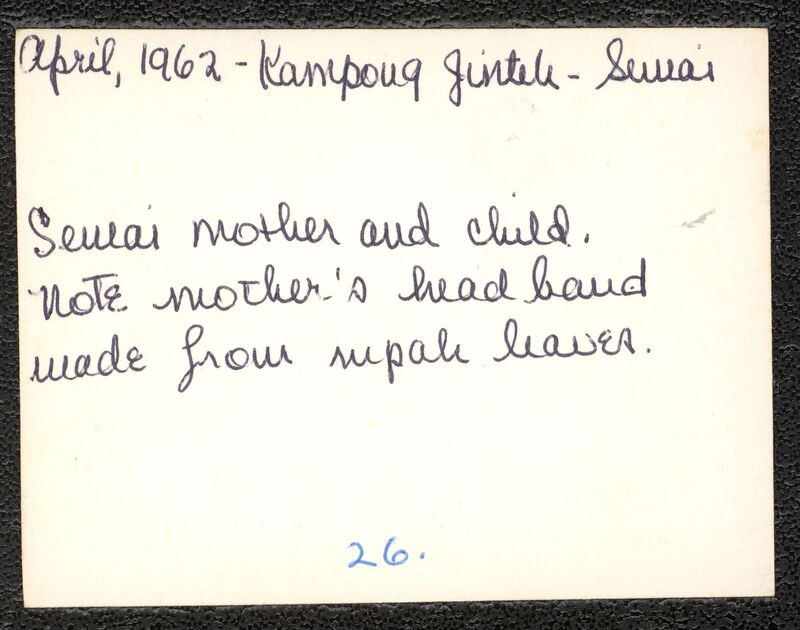 April, 1962 - Kampong Jintek - Semai
Semai mother and child.
Note mother's head band
made from nipah leaves.
26.